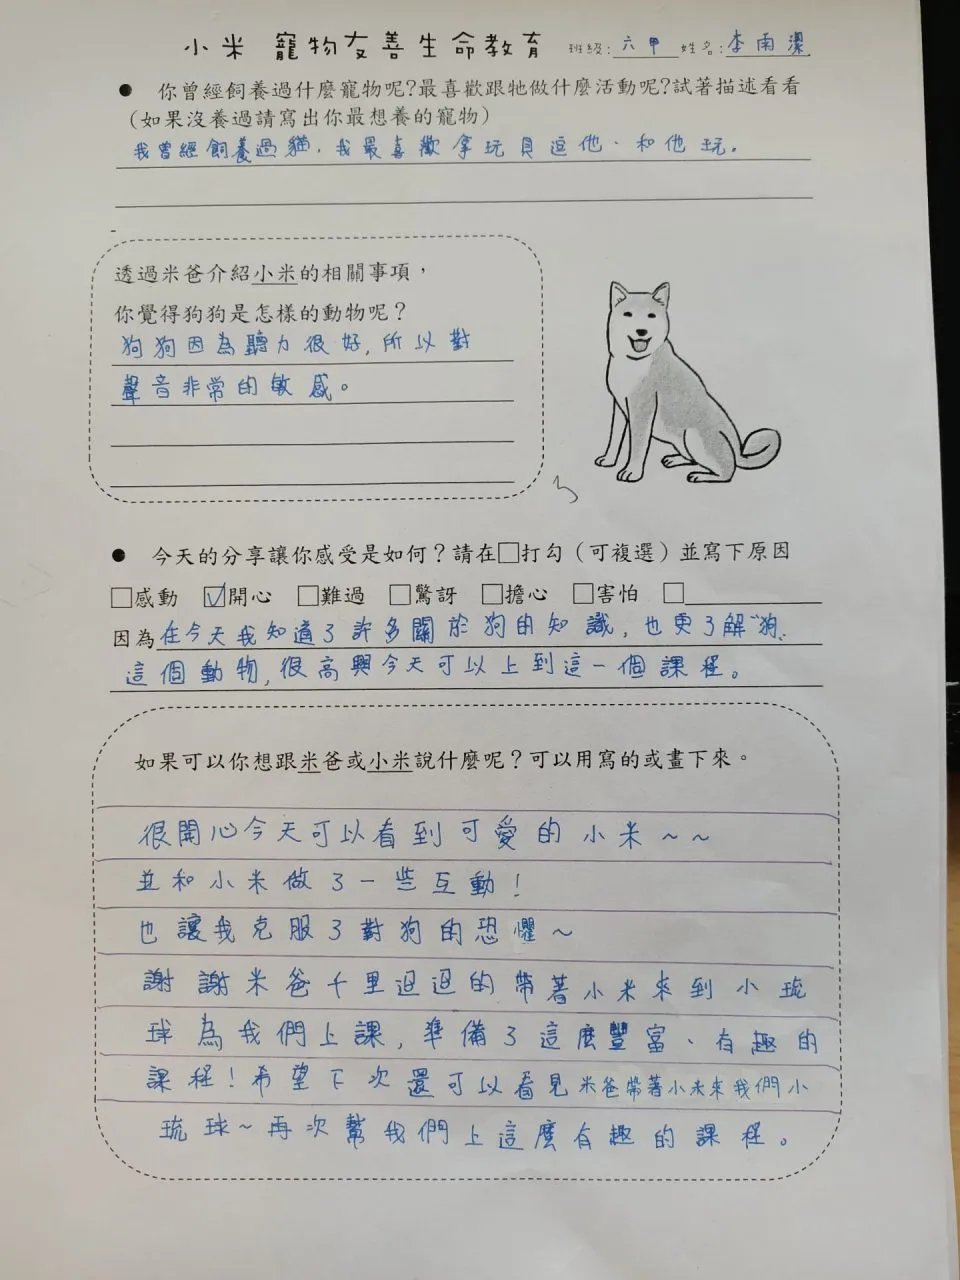 小米 寵物友善生命教育 班級:六甲 姓名:李南潔
● 你曾經飼養過什麼寵物呢?最喜歡跟牠做什麼活動呢?試著描述看看
(如果沒養過請寫出你最想養的寵物)
我曾經飼養過貓,我最喜歡拿玩具逗他、和他玩。
透過米爸介紹小米的相關事項,
你覺得狗狗是怎樣的動物呢?
狗狗因為聽力很好,所以對
聲音非常的敏感。
● 今天的分享讓你感受是如何?請在□打勾(可複選)並寫下原因
□感動 ☑開心 □難過 □驚訝 □擔心 □害怕 □
因為在今天我知道了許多關於狗的知識,也更了解"狗"
這個動物,很高興今天可以上到這一個課程。
如果可以你想跟米爸或小米說什麼呢?可以用寫的或畫下來。
很開心今天可以看到可愛的小米~~
並和小米做了一些互動!
也讓我克服了對狗的恐懼~
謝謝米爸千里迢迢的帶著小米來到小琉
球為我們上課,準備了這麼豐富、有趣的
課程!希望下次還可以看見米爸帶著小米來我們小
琉球~再次幫我們上這麼有趣的課程。